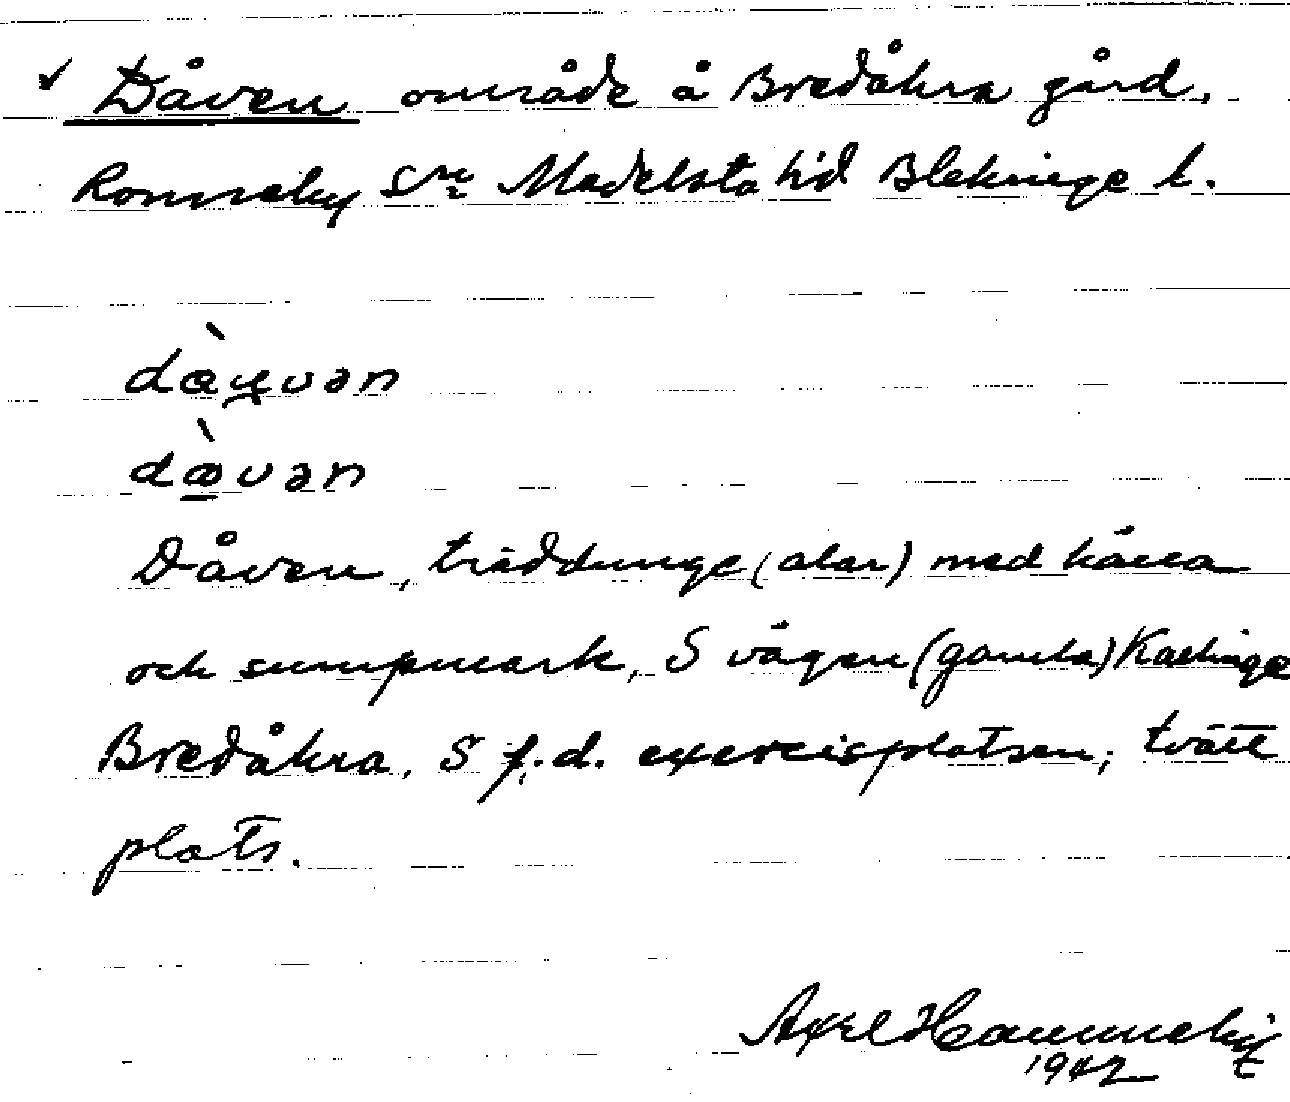 ✓ Dåven område å Bredåkra gård,
Ronneby sn Medelsta hd Blekinge l.
Dåven, träddunge (alar) med källa
och sumpmark, S vägen (gamla) Kallinge
Bredåkra, S f.d. exercisplatsen; tvätt
plats.
Axel Hammneby
1942